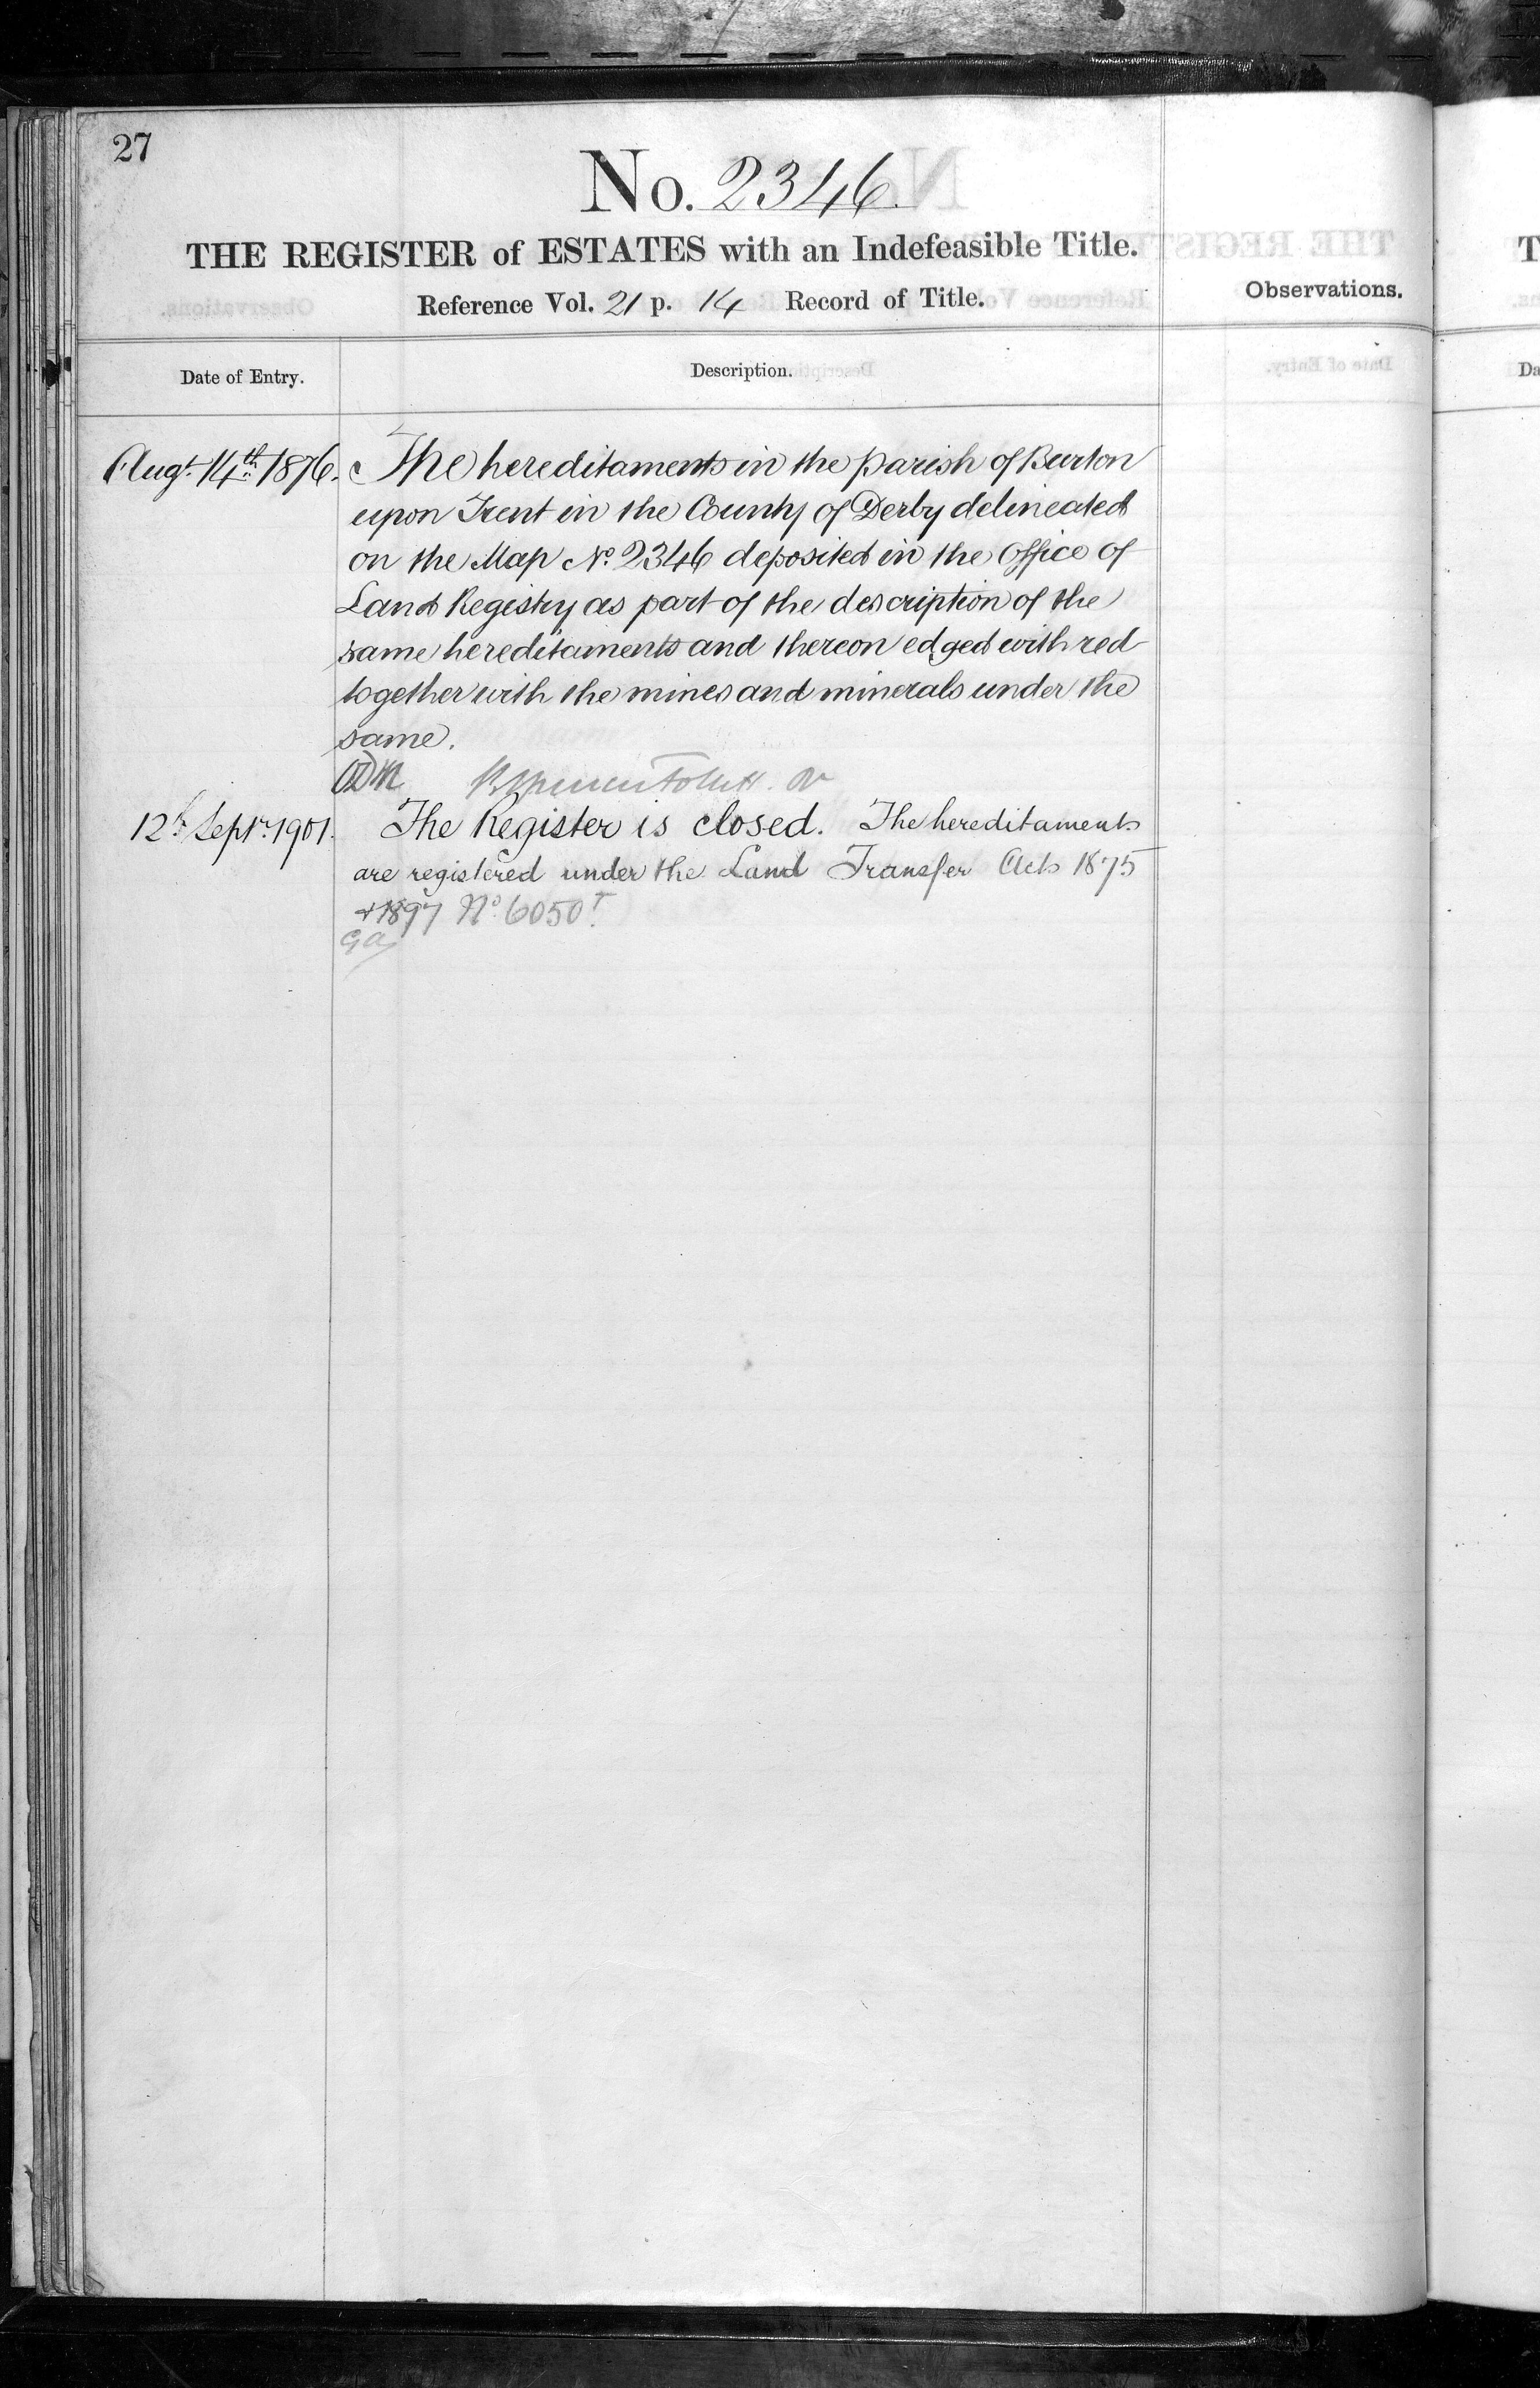 27
No. 2346.
THE REGISTER of ESTATES with an Indefeasible Title.
Reference Vol. 21 p. 14 Record of Title.
Observations.
Date of Entry.
Description.
Augt. 14th. 1876. The hereditaments in the parish of Burton
upon Trent in the County of Derby delineated
on the Map No. 2346 deposited in the Office of
Land Registry as part of the description of the
same hereditaments and thereon edged with red
together with the mines and minerals under the
same.
12th Septr. 1901. The Register is closed. The hereditaments
are registered under the Land Transfer Acts 1875
+ 1897 No. 6050T.
GA